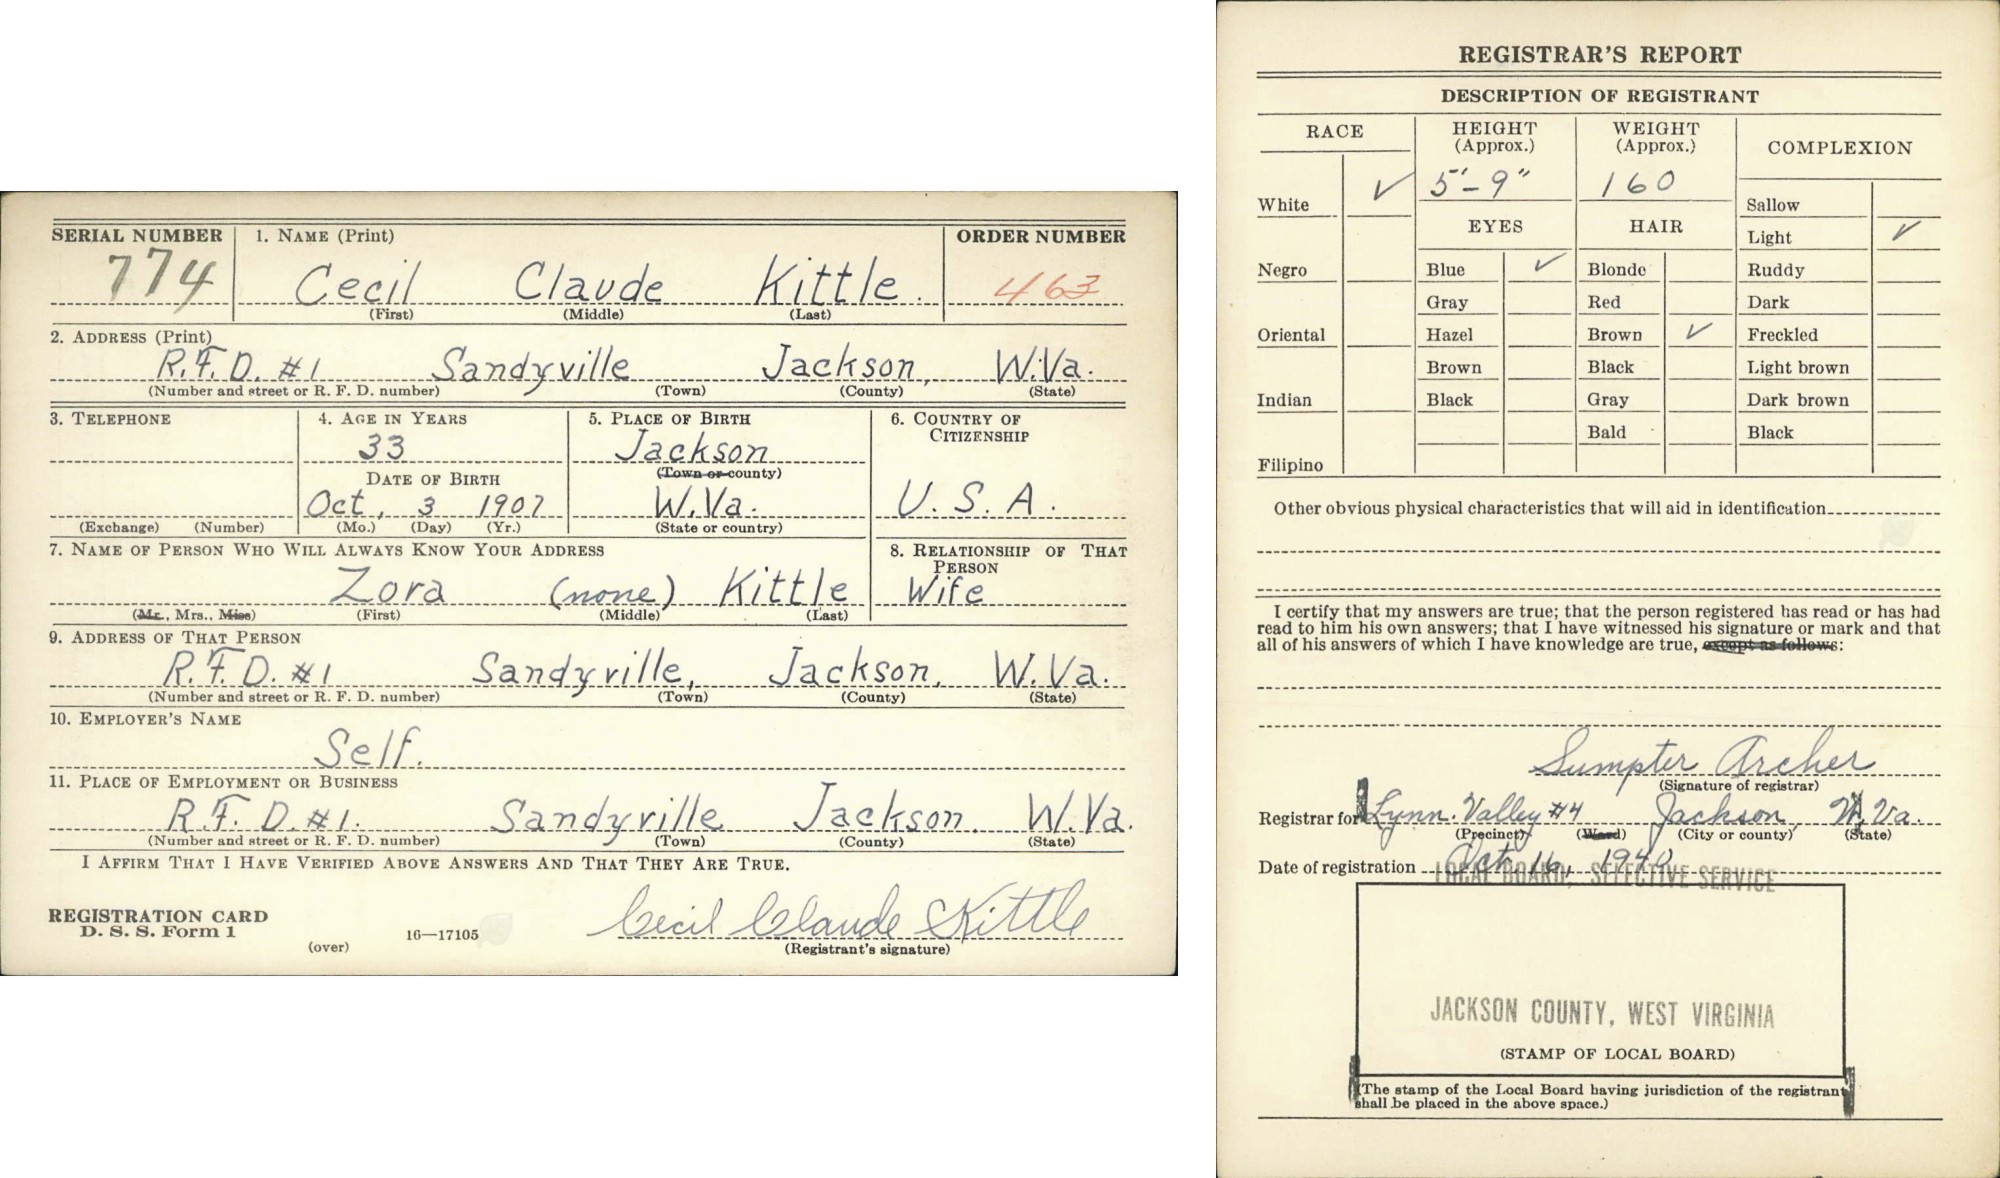 SERIAL NUMBER 1. NAME (Print) ORDER NUMBER
774 Cecil Claude Kittle. 463
(First) (Middle) (Last)
2. ADDRESS (Print)
R.F.D. #1 Sandyville Jackson, W.Va.
(Number and street or R. F. D. number) (Town) (County) (State)
3. TELEPHONE 4. AGE IN YEARS 5. PLACE OF BIRTH 6. COUNTRY OF CITIZENSHIP
33 Jackson
(Town or county)
DATE OF BIRTH
Oct, 3 1907 W.Va. U. S. A.
(Exchange) (Number) (Mo.) (Day) (Yr.) (State or country)
7. NAME OF PERSON WHO WILL ALWAYS KNOW YOUR ADDRESS 8. RELATIONSHIP OF THAT PERSON
Zora (none) Kittle Wife
(Mr., Mrs., Miss) (First) (Middle) (Last)
9. ADDRESS OF THAT PERSON
R.F.D. #1 Sandyville, Jackson, W.Va.
(Number and street or R. F. D. number) (Town) (County) (State)
10. EMPLOYER'S NAME
Self.
11. PLACE OF EMPLOYMENT OR BUSINESS
R.F.D. #1. Sandyville Jackson. W.Va.
(Number and street or R. F. D. number) (Town) (County) (State)
I AFFIRM THAT I HAVE VERIFIED ABOVE ANSWERS AND THAT THEY ARE TRUE.
REGISTRATION CARD
D. S. S. Form 1 16—17105 Cecil Claude Kittle
(over) (Registrant's signature)
REGISTRAR'S REPORT
DESCRIPTION OF REGISTRANT
RACE HEIGHT (Approx.) WEIGHT (Approx.) COMPLEXION
White ✓ 5'-9" 160 Sallow
EYES HAIR Light ✓
Negro Blue ✓ Blonde Ruddy
Gray Red Dark
Oriental Hazel Brown ✓ Freckled
Brown Black Light brown
Indian Black Gray Dark brown
Bald Black
Filipino
Other obvious physical characteristics that will aid in identification
I certify that my answers are true; that the person registered has read or has had
read to him his own answers; that I have witnessed his signature or mark and that
all of his answers of which I have knowledge are true, except as follows:
Sumpter Archer
(Signature of registrar)
Registrar for Lynn. Valley #4 Jackson W.Va.
(Precinct) (Ward) (City or county) (State)
Date of registration Oct. 16, 1940
LOCAL BOARD, SELECTIVE SERVICE
JACKSON COUNTY, WEST VIRGINIA
(STAMP OF LOCAL BOARD)
(The stamp of the Local Board having jurisdiction of the registrant
shall be placed in the above space.)